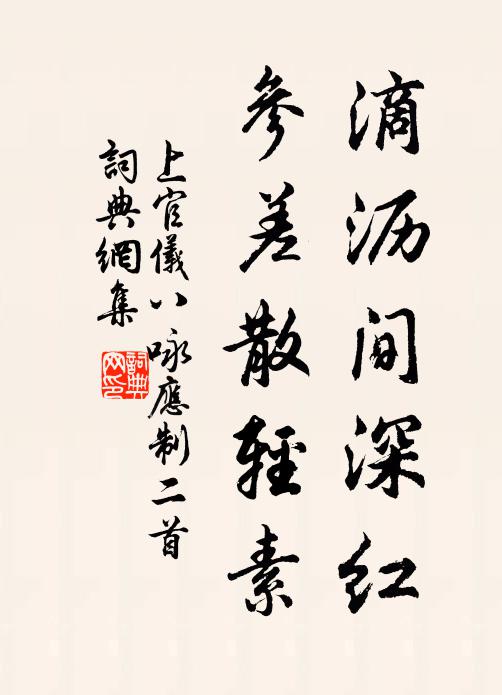 滴沥间深红
參差散輕素
上官儀八咏應制二首
詞典網集
詞典网印